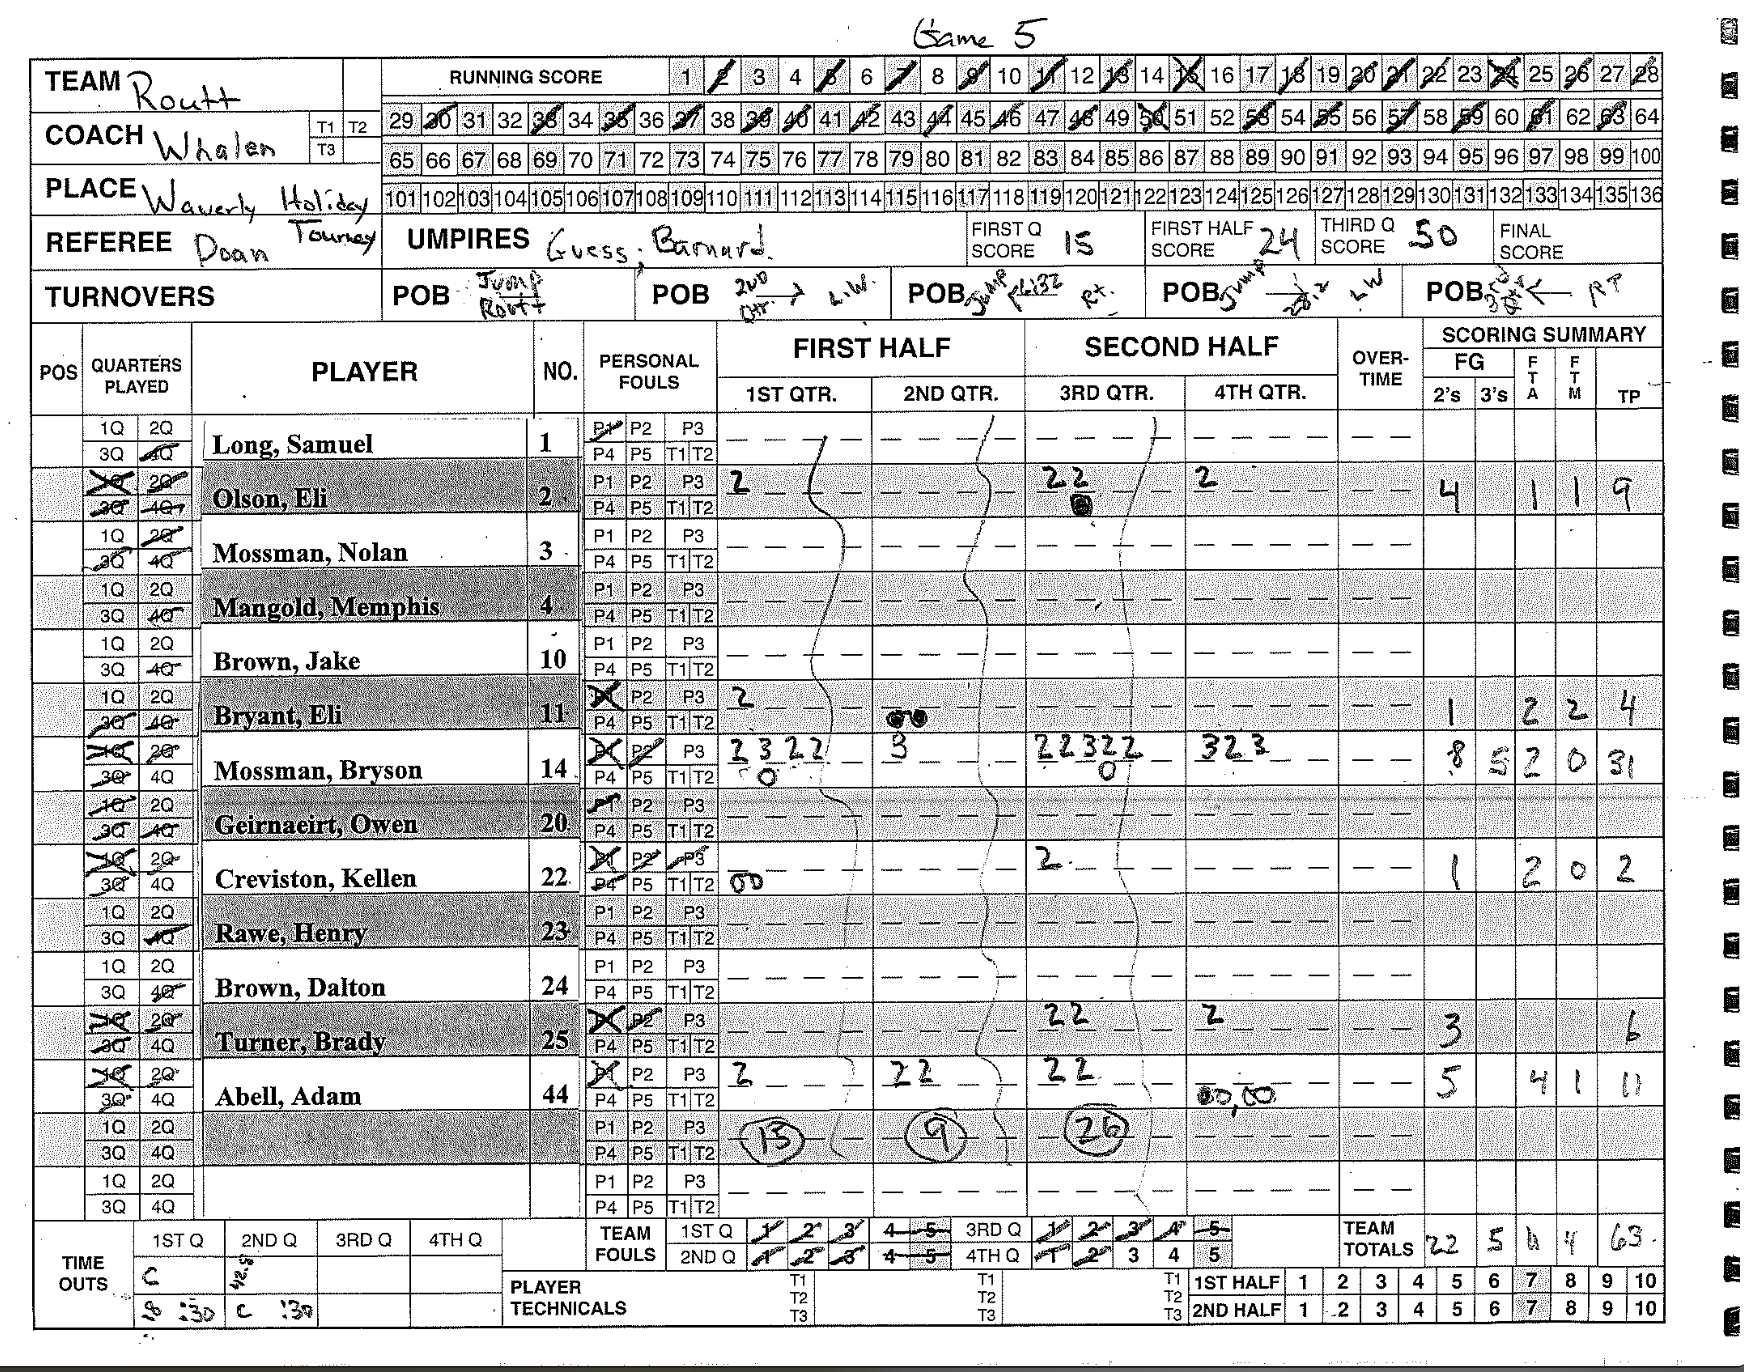 Game 5
TEAM Routt RUNNING SCORE 1 2 3 4 5 6 7 8 9 10 11 12 13 14 15 16 17 18 19 20 21 22 23 24 25 26 27 28
COACH Whalen T1 T2 T3 29 30 31 32 33 34 35 36 37 38 39 40 41 42 43 44 45 46 47 48 49 50 51 52 53 54 55 56 57 58 59 60 61 62 63 64
65 66 67 68 69 70 71 72 73 74 75 76 77 78 79 80 81 82 83 84 85 86 87 88 89 90 91 92 93 94 95 96 97 98 99 100
PLACE Waverly Holiday Tourney 101 102 103 104 105 106 107 108 109 110 111 112 113 114 115 116 117 118 119 120 121 122 123 124 125 126 127 128 129 130 131 132 133 134 135 136
REFEREE Doan UMPIRES Guess, Barnard FIRST Q SCORE 15 FIRST HALF SCORE 24 THIRD Q SCORE 50 FINAL SCORE
TURNOVERS POB Jump Routt POB 2nd Qtr. → L.W. POB Jump Rt. POB Jump → LW POB ← RT
POS QUARTERS PLAYED PLAYER NO. PERSONAL FOULS FIRST HALF SECOND HALF OVER-TIME SCORING SUMMARY
1ST QTR. 2ND QTR. 3RD QTR. 4TH QTR. FG 2's 3's FTA FTM TP
1Q 2Q 3Q 4Q Long, Samuel 1 P1 P2 P3 P4 P5 T1 T2
1Q 2Q 3Q 4Q Olson, Eli 2 P1 P2 P3 P4 P5 T1 T2 2 22 2 4 1 1 9
1Q 2Q 3Q 4Q Mossman, Nolan 3 P1 P2 P3 P4 P5 T1 T2
1Q 2Q 3Q 4Q Mangold, Memphis 4 P1 P2 P3 P4 P5 T1 T2
1Q 2Q 3Q 4Q Brown, Jake 10 P1 P2 P3 P4 P5 T1 T2
1Q 2Q 3Q 4Q Bryant, Eli 11 P1 P2 P3 P4 P5 T1 T2 2 1 2 2 4
1Q 2Q 3Q 4Q Mossman, Bryson 14 P1 P2 P3 P4 P5 T1 T2 2322 0 3 22322 0 323 8 5 2 0 31
1Q 2Q 3Q 4Q Geirnaeirt, Owen 20 P1 P2 P3 P4 P5 T1 T2
1Q 2Q 3Q 4Q Creviston, Kellen 22 P1 P2 P3 P4 P5 T1 T2 00 2 1 2 0 2
1Q 2Q 3Q 4Q Rawe, Henry 23 P1 P2 P3 P4 P5 T1 T2
1Q 2Q 3Q 4Q Brown, Dalton 24 P1 P2 P3 P4 P5 T1 T2
1Q 2Q 3Q 4Q Turner, Brady 25 P1 P2 P3 P4 P5 T1 T2 22 2 3 6
1Q 2Q 3Q 4Q Abell, Adam 44 P1 P2 P3 P4 P5 T1 T2 2 22 22 00,00 5 4 1 11
1Q 2Q 3Q 4Q P1 P2 P3 P4 P5 T1 T2 15 9 26
1Q 2Q 3Q 4Q P1 P2 P3 P4 P5 T1 T2
TIME OUTS 1ST Q 2ND Q 3RD Q 4TH Q TEAM FOULS 1ST Q 1 2 3 4 5 3RD Q 1 2 3 4 5 TEAM TOTALS 22 5 11 4 63
2ND Q 1 2 3 4 5 4TH Q 1 2 3 4 5
C PLAYER TECHNICALS T1 T2 T3 T1 T2 T3 T1 T2 T3 1ST HALF 1 2 3 4 5 6 7 8 9 10
:30 C :30 2ND HALF 1 2 3 4 5 6 7 8 9 10